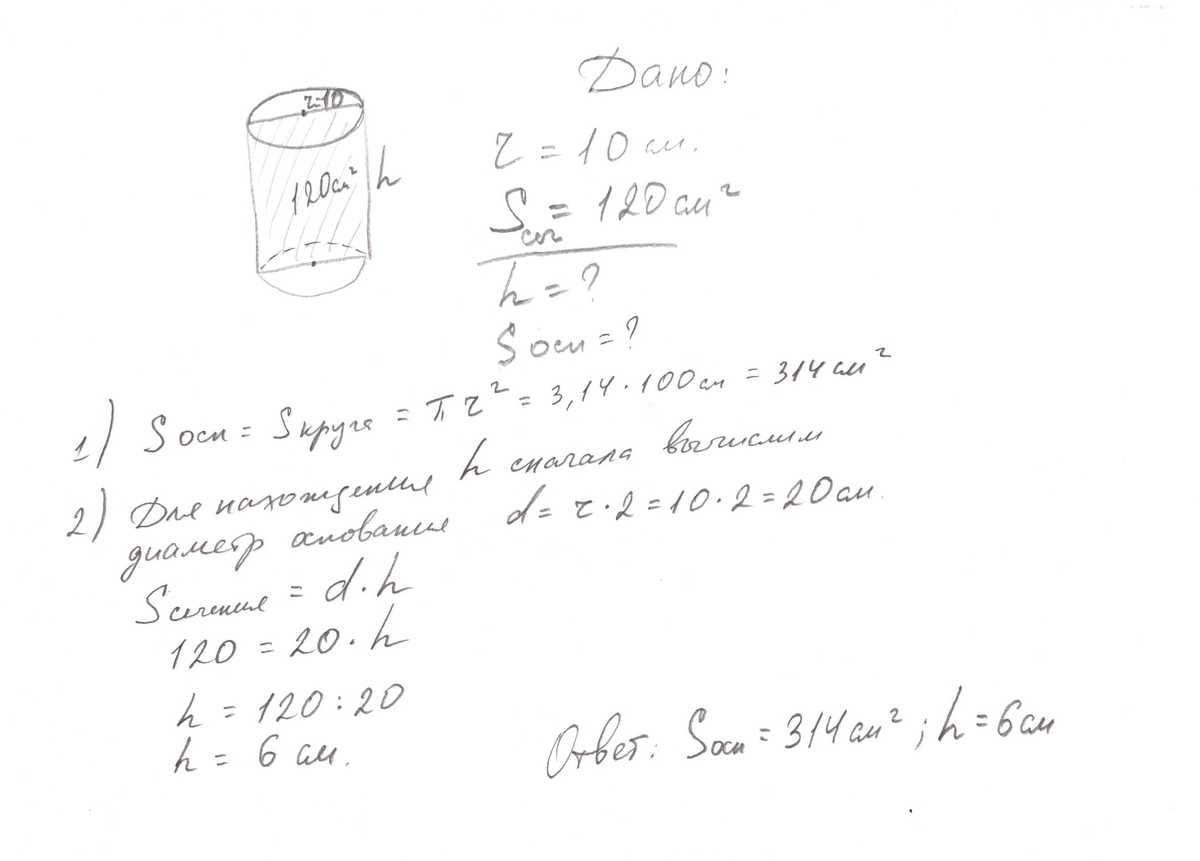 Дано:
r=10
120см² h
r = 10 см.
Sсеч = 120 см²
h = ?
S осн = ?
1) S осн = S круга = πr² = 3,14 · 100 см = 314 см²
2) Для нахождения h сначала вычислим
диаметр основания d = r · 2 = 10 · 2 = 20 см.
S сечения = d · h
120 = 20 · h
h = 120 : 20
h = 6 см.
Ответ: Sосн = 314 см² ; h = 6 см